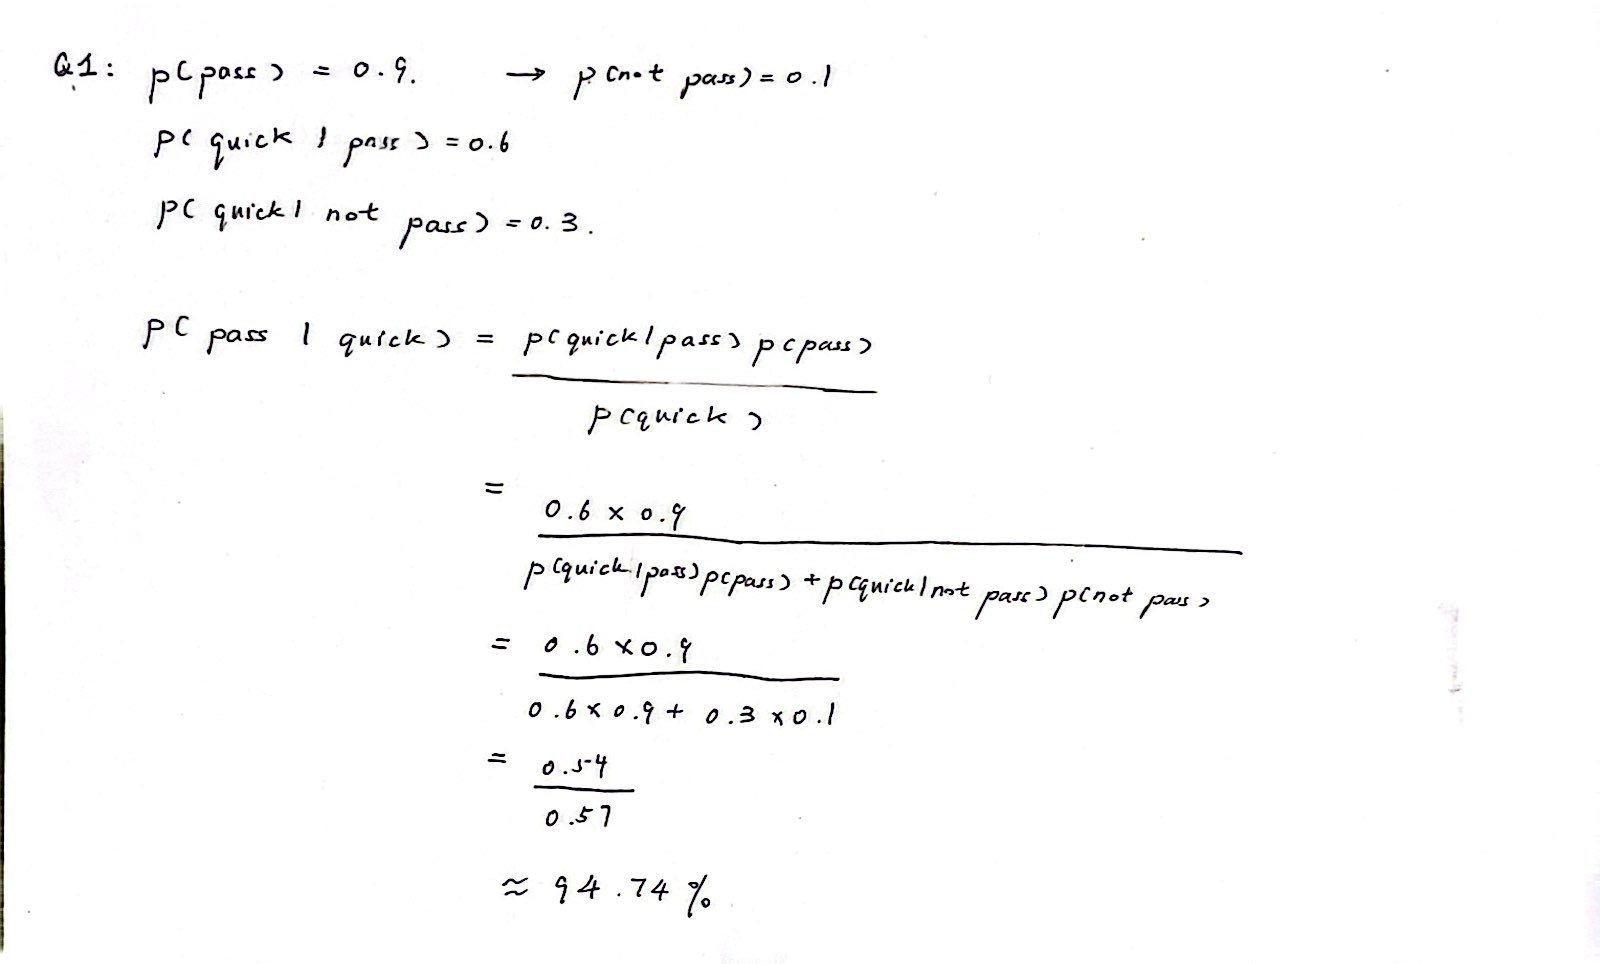 Q1: p(pass) = 0.9. → p(not pass) = 0.1
p(quick | pass) = 0.6
p(quick | not pass) = 0.3.
p(pass | quick) = p(quick | pass) p(pass)
p(quick)
=
0.6 × 0.9
p(quick | pass) p(pass) + p(quick | not pass) p(not pass)
= 0.6 × 0.9
0.6 × 0.9 + 0.3 × 0.1
= 0.54
0.57
≈ 94.74 %